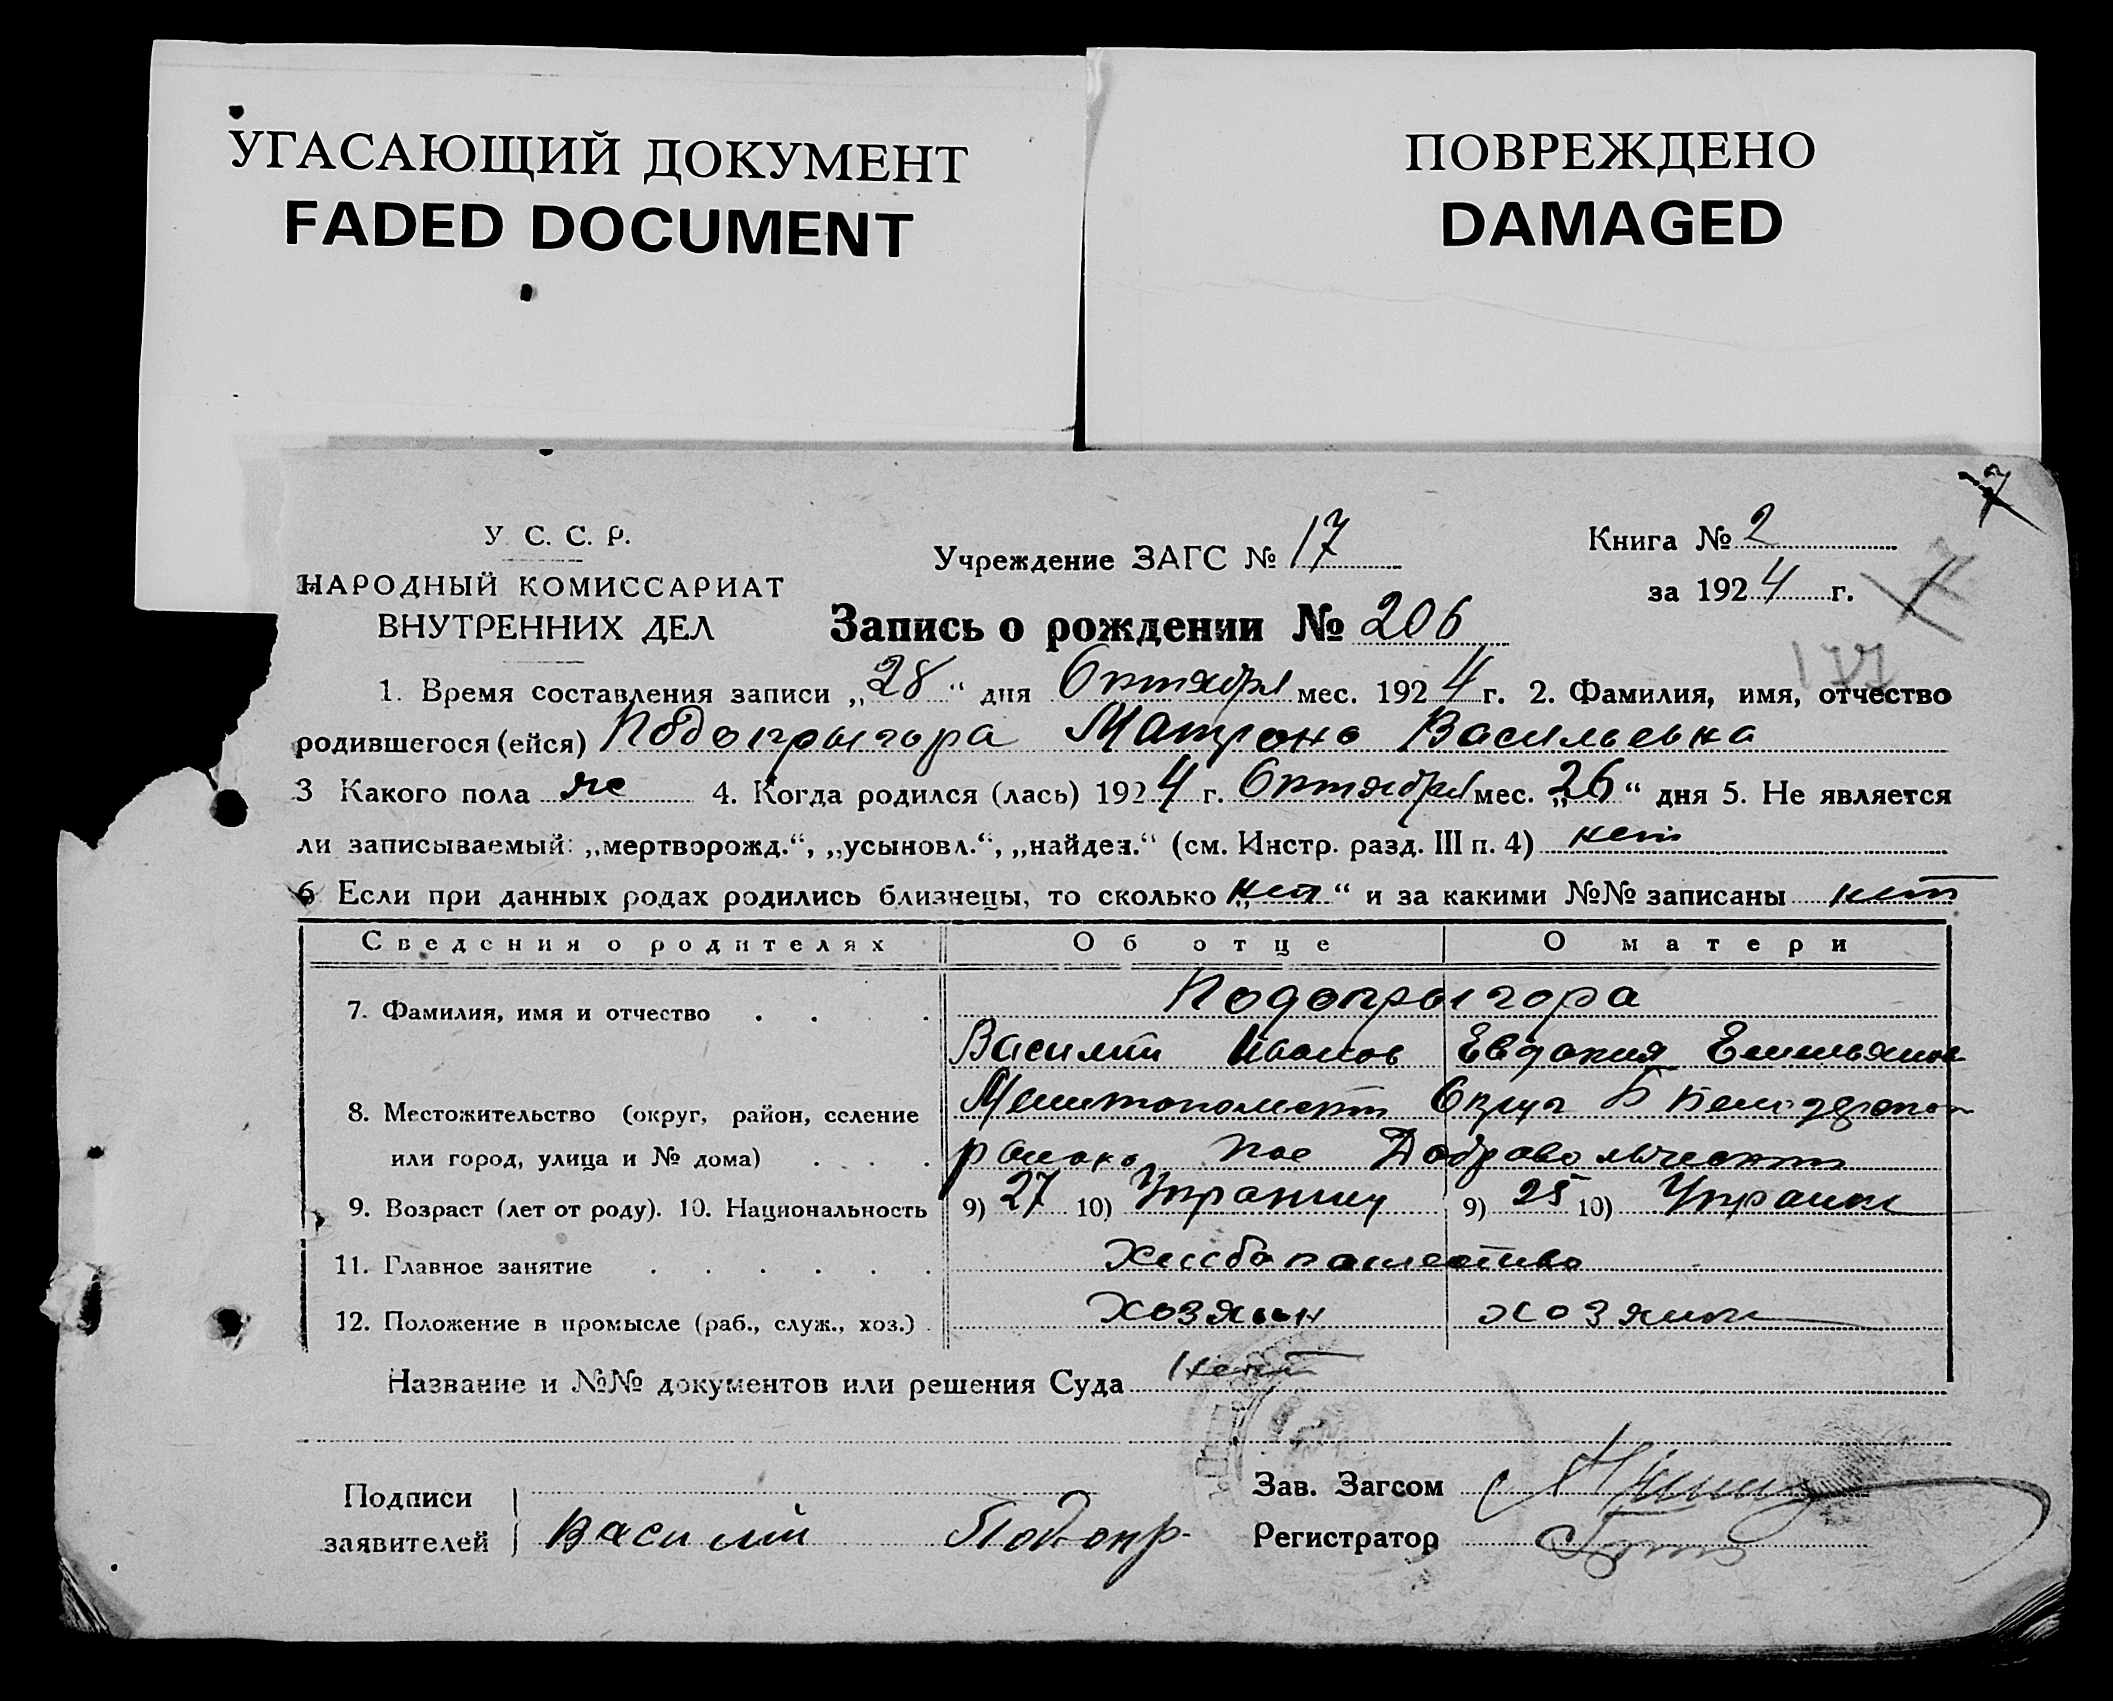 УГАСАЮЩИЙ ДОКУМЕНТ
FADED DOCUMENT
ПОВРЕЖДЕНО
DAMAGED
У. С. С. Р.
НАРОДНЫЙ КОМИССАРИАТ
ВНУТРЕННИХ ДЕЛ
Учреждение ЗАГС № 17
Книга № 2
за 1924 г.
177
Запись о рождении № 206
1. Время составления записи „28“ дня Октября мес. 1924 г. 2. Фамилия, имя, отчество
родившегося (ейся) Подопрыгора Матрона Васильевна
3 Какого пола же 4. Когда родился (лась) 1924 г. Октября мес. „26“ дня 5. Не является
ли записываемый: „мертворожд.“, „усыновл.“, „найден.“ (см. Инстр. разд. III п. 4) нет
6 Если при данных родах родились близнецы, то сколько „нет“ и за какими №№ записаны нет
Сведения о родителях Об отце О матери
7. Фамилия, имя и отчество . . . . Подопрыгора
Василий Иванов Евдокия Емельянов
8. Местожительство (округ, район, селение Округ Б
или город, улица и № дома) . . . района пос
9. Возраст (лет от роду). 10. Национальность 9) 27 10) Украинц 9) 25 10) Украинк
11. Главное занятие . . . . . . Хлебопашество
12. Положение в промысле (раб., служ., хоз.) . хозяин хозяин
Название и №№ документов или решения Суда нет
Подписи
заявителей Василий Подопр-
Зав. Загсом
Регистратор